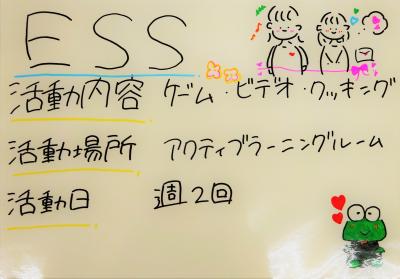 ESS
活動内容 ゲーム・ビデオ・クッキング
活動場所 アクティブラーニングルーム
活動日 週2回